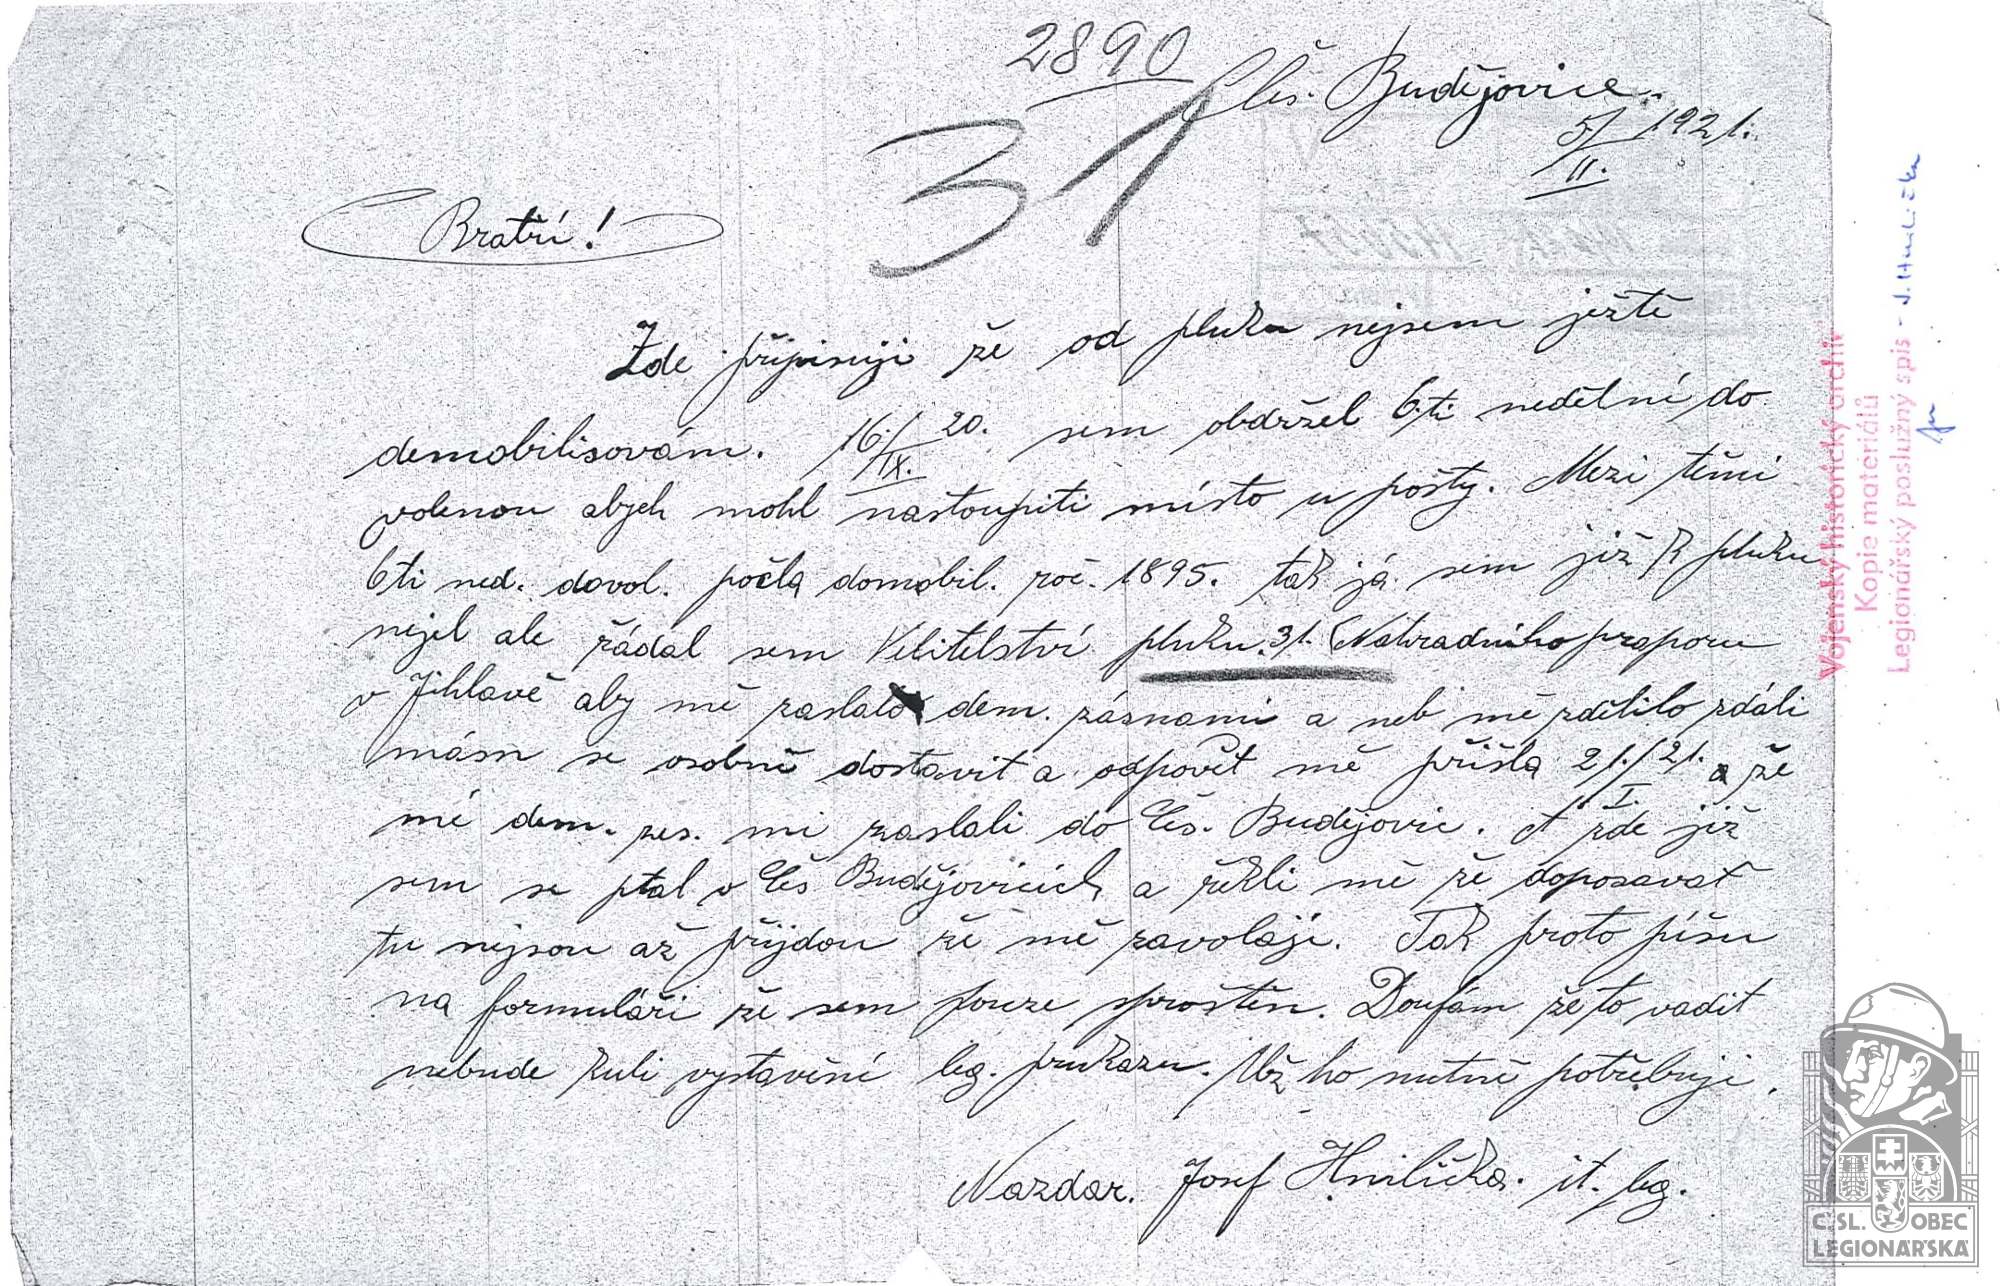 2890
31
Čes. Budějovice.
5/II. 1921.
Bratří!
Zde připisuji že od pluku nejsem ježtě
demobilisovám. 16./IX. 20. sem obdržel 6.ti nedělní do
volenou abych mohl nastoupiti místo u pošty. Mezi těmi
6ti ned. dovol. počla domobil. roč. 1895. tak já sem již k pluku
nejel ale řádal sem Velitelství pluku 31. Náhradního praporu
v Jihlavě aby mě zaslalo dem. záznami a neb mě zdělilo zdáli
mám se osobně dostavit a odpověť mě přišla 21./I. 21. a že
mé dem. zes. mi zaslali do Čes. Budějovic. A zde již
sem se ptal v Čes Budějovicích a řekli mě že doposavať
tu nejsou až přijdou že mě zavolají. Tak proto píšu
na formuláři že sem pouze sproštěn. Doufám že to vadit
nebude kuli vystavění leg. prukazu. Už ho nutně potřebuji.
Nazdar. Josef Hnilička. it. leg.
Vojenský historický archiv
Kopie materiálů
Legionářský poslužný spis - J. Hnilička
Č.SL. OBEC
LEGIONÁŘSKÁ